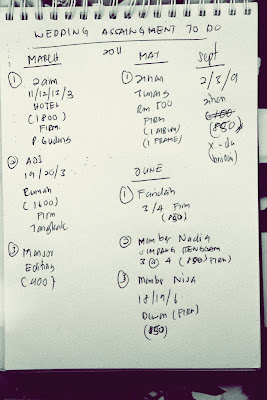 WEDDING ASSAINGMENT TO DO
2011
MARCH
① Zaim
11/12/13/3
HOTEL
(1800)
FIRM
P. Gudang
② ADI
19/20/3
Rumah
(1600)
Firm
Tangkak
③ Mansor
Editing
(400)
MAY
① Jihan
Tunang
RM 500
FIRM
(1 ALBUM)
(1 FRAME)
JUNE
① Faridah
3/4 Firm
(850)
② Member Nadia
SIMPANG RENGGAM
3 @ 4 (850) FIRM)
③ Member Nisa
18/19/6
(FIRM)
(850)
Sept
2/3/9
Jihan
(850)